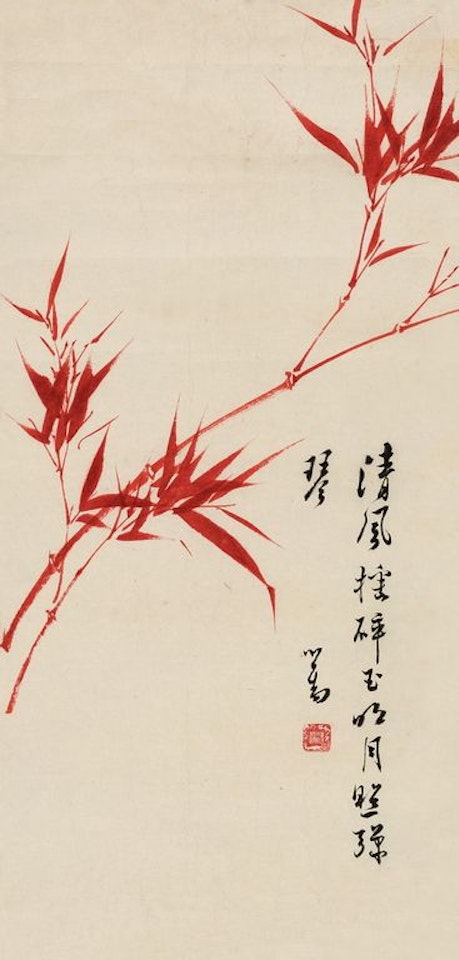 清風搖碎玉明月照彈
琴
心畬